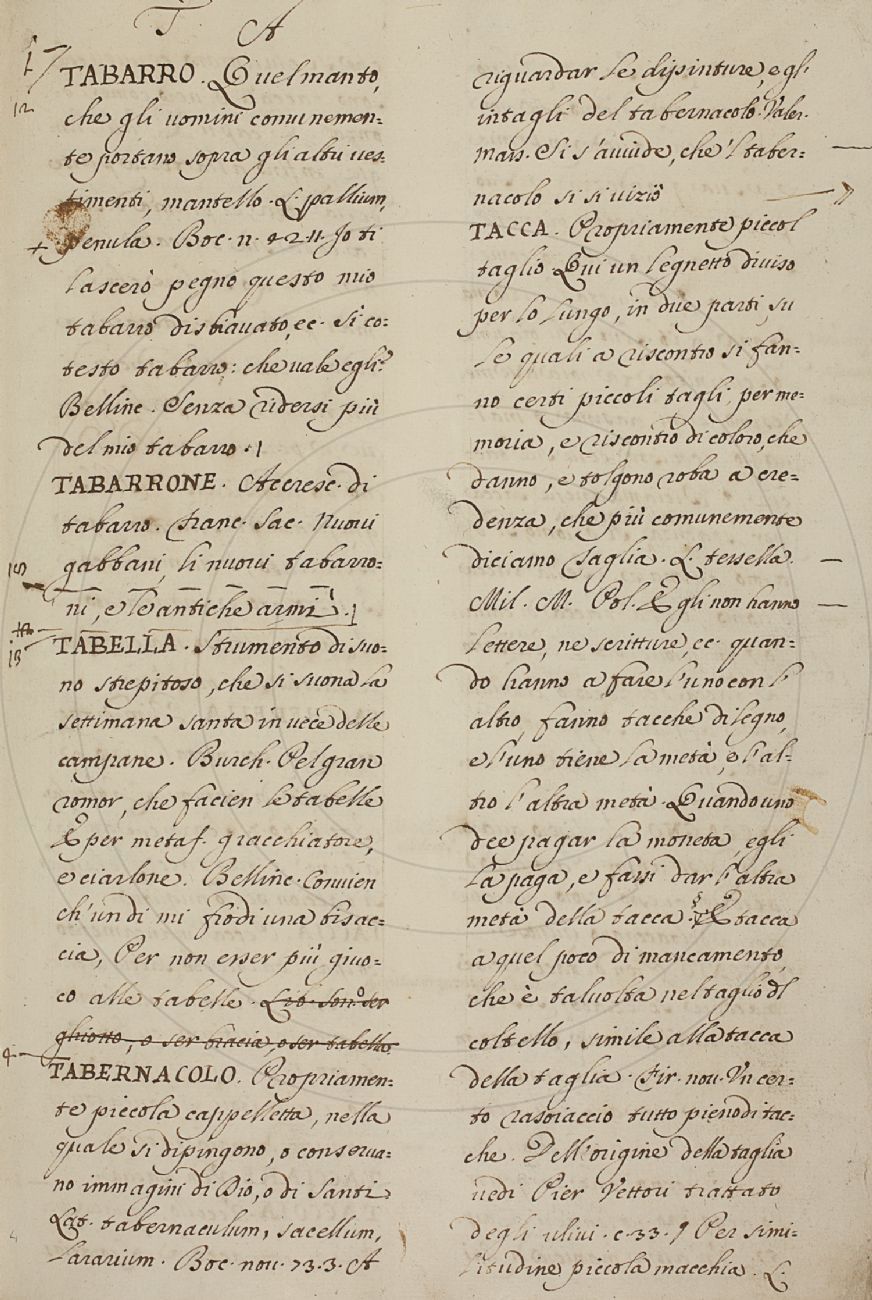 T A
TABARRO. Quel manto,
che gli uomini comunemen:
te portano sopra gli altri ves:
timenti, mantello. L. pallium,
penula. Boc. n. 72.11. Jo ti
lascerò pegno questo mio
tabarro disbiavato, ec. Sì co:
testo tabarro: che vale egli?
Bellinc. Senza ridersi più
del mio tabarro.
TABARRONE. Accresc. di
tabarro. Franc. Sac. Nuovi
gabbani, li nuovi tabarro:
ni, e le antiche armi.
TABELLA. Strumento di suo:
no strepitoso, che si suona la
settimana santa in vece delle
campane. Burch. Pel gran
romor, che facien le tabelle
E per metaf. gracchiatore,
e ciarlone. Bellinc. Convien
ch'un dì mi frodi una bisac:
cia, Per non esser più giuo:
co alle tabelle. Lib. Son. o ser
ghiotto, o ser bracia, o ser tabella
TABERNACOLO. Propriamen:
te piccola cappelletta, nella
quale si dipingono, o conserva:
no immagini di Dio, o di Santi
Lat. tabernaculum, sacellum,
lararium. Boc. nov. 73.3. A
riguardar le dipinture, e gl'
intagli del tabernacolo. Valer.
Mass. Si s'avvide, che 'l taber:
nacolo si si vizio
TACCA. Propriamente piccol
taglio Qui un legnetto diviso
per lo lungo, in due parti, su
le quali a riscontro si fan:
no certi piccoli tagli, per me:
moria, e riscontro di coloro, che
danno, e tolgono roba a cre:
denza, che più comunemente
diciamo taglia. L. tessella.
Mil. M. Pol. Egli non hanno
lettere, ne scritture, ec. quan:
do hanno a fare l'uno con l'
altro, fanno tacche di legno,
e l'uno tiene la metà, e l'al:
tro l'altra metà. Quando uno
dee pagar la moneta, egli
la paga, e farsi dar l'altra
metà della tacca. § E tacca
a quel poco di mancamento,
che è talvolta nel taglio dl
coltello, simile alla tacca
della taglia. Fir. nov. Un cer:
to rasoiaccio tutto pieno di tac:
che. Dell'origine della taglia
vedi Pier Vettori trattato
degli ulivi. c. 33. § Per simi:
litudine piccola macchia. L.